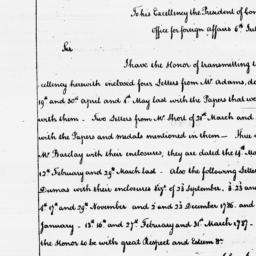 To his Excellency the President of Con
Office for foreign affairs 6th Jul
Sir
I have the Honor of transmitting t
cellency herewith inclosed four Letters from Mr Adams, da
19th and 30th April and 1st May last with the Papers that wo
with them – Two Letters from Mr Short of 28th March and
with the Papers and medals mentioned in them – three
Mr Barclay with their enclosures, they are dated the 4th Ma
13th February and 29th March last – Also the following Lette
Dumas with their enclosures Vizt of 22 September, & 23 an
4th 17th and 29th November and 2 and 23 December 1786. and
January – 13th 16th and 27th February and 31st March 1787 –
the Honor to be with great Respect and Esteem &c